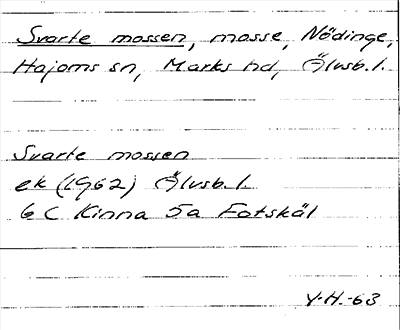 Svarte mossen, mosse, Nödinge,
Hajoms sn, Marks hd, Älvsb.l.
Svarte mossen
ek (1962) Älvsb.l.
6 C Kinna 5a Fotskäl
Y.H.-63